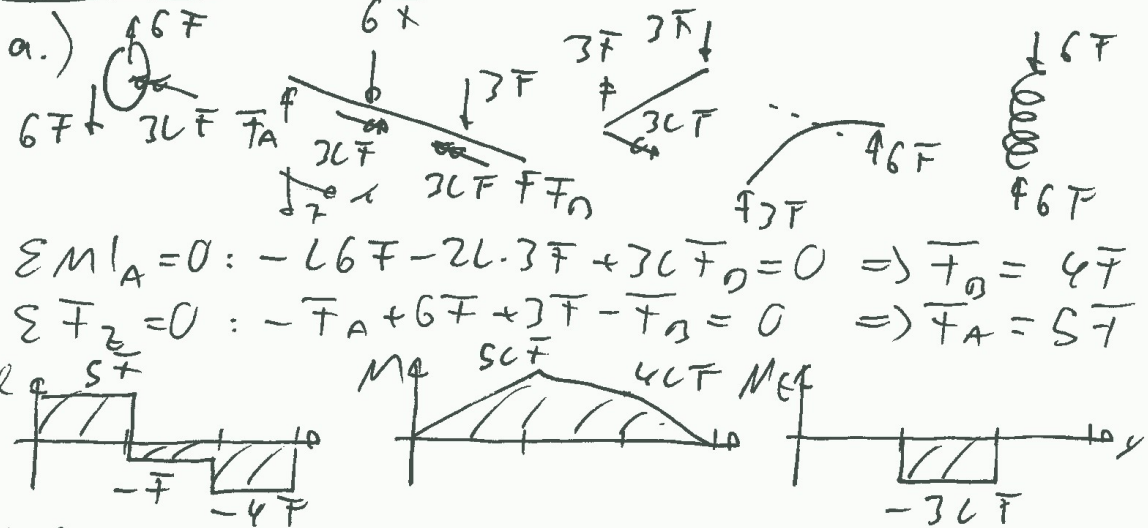 a.) 6F 6F 3LF F_A 6F 3LF 3F 3LF F_B 3F 3F 3LF 3F 6F 6F 6F
z x
ΣM|_A = 0 : - L6F - 2L·3F + 3L F_B = 0 => F_B = 4F
ΣF_z = 0 : - F_A + 6F + 3F - F_B = 0 => F_A = 5F
5F M 5LF 4LF M_t
-F -4F -3LF y